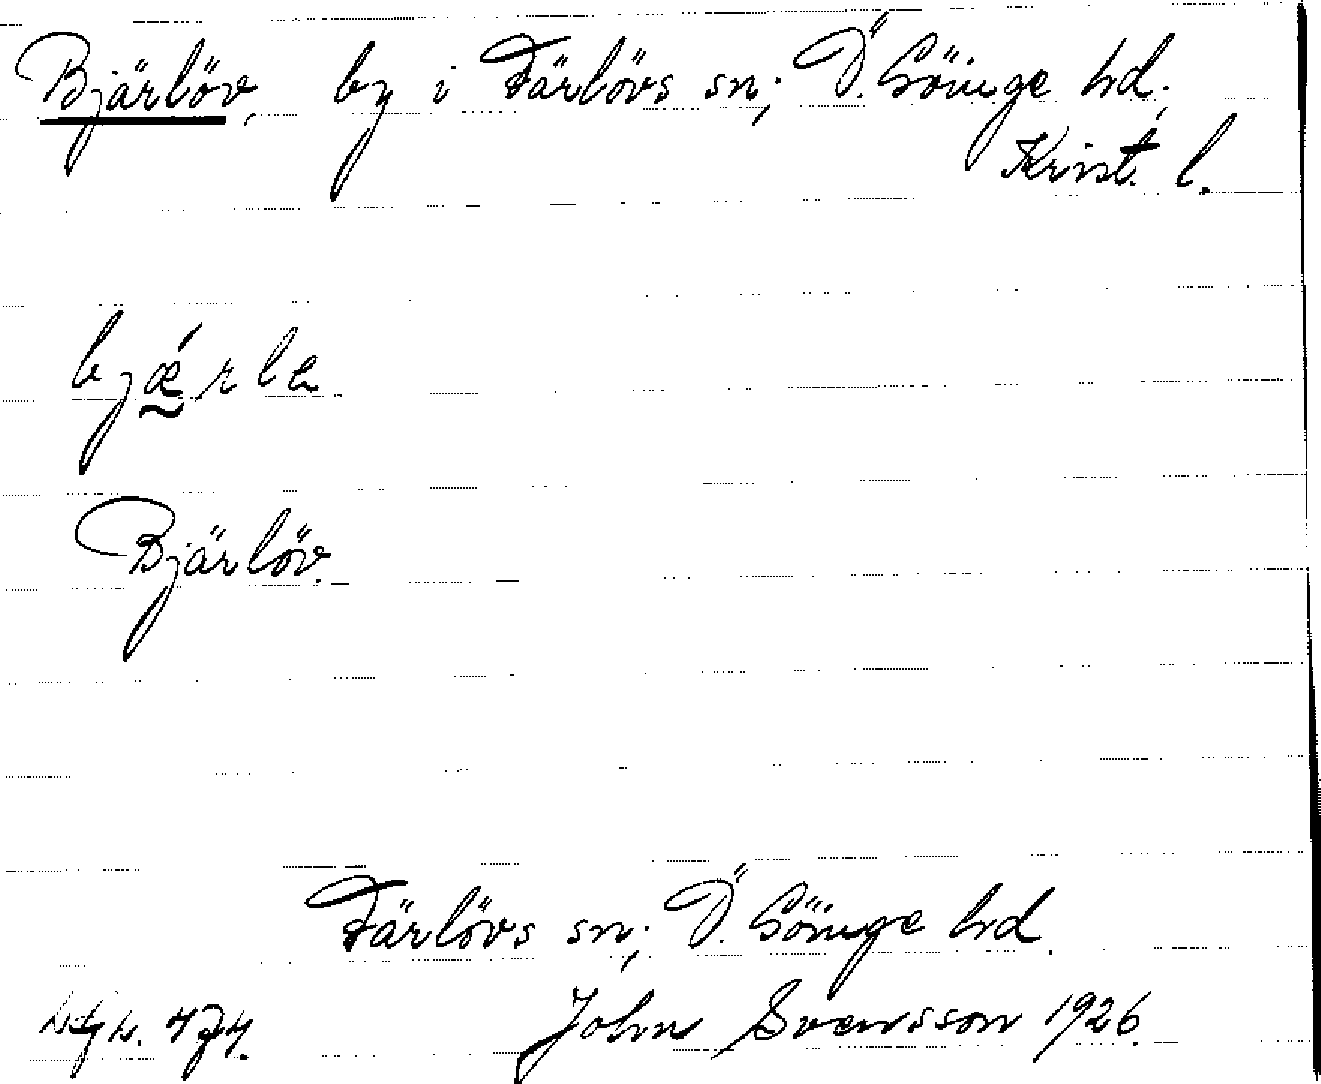 Bjärlöv, by i Färlövs sn; Ö. Göinge hd;
Krist. l.
bjǽ̰rla
Bjärlöv.
Färlövs sn; Ö. Göinge hd.
John Svensson 1926.